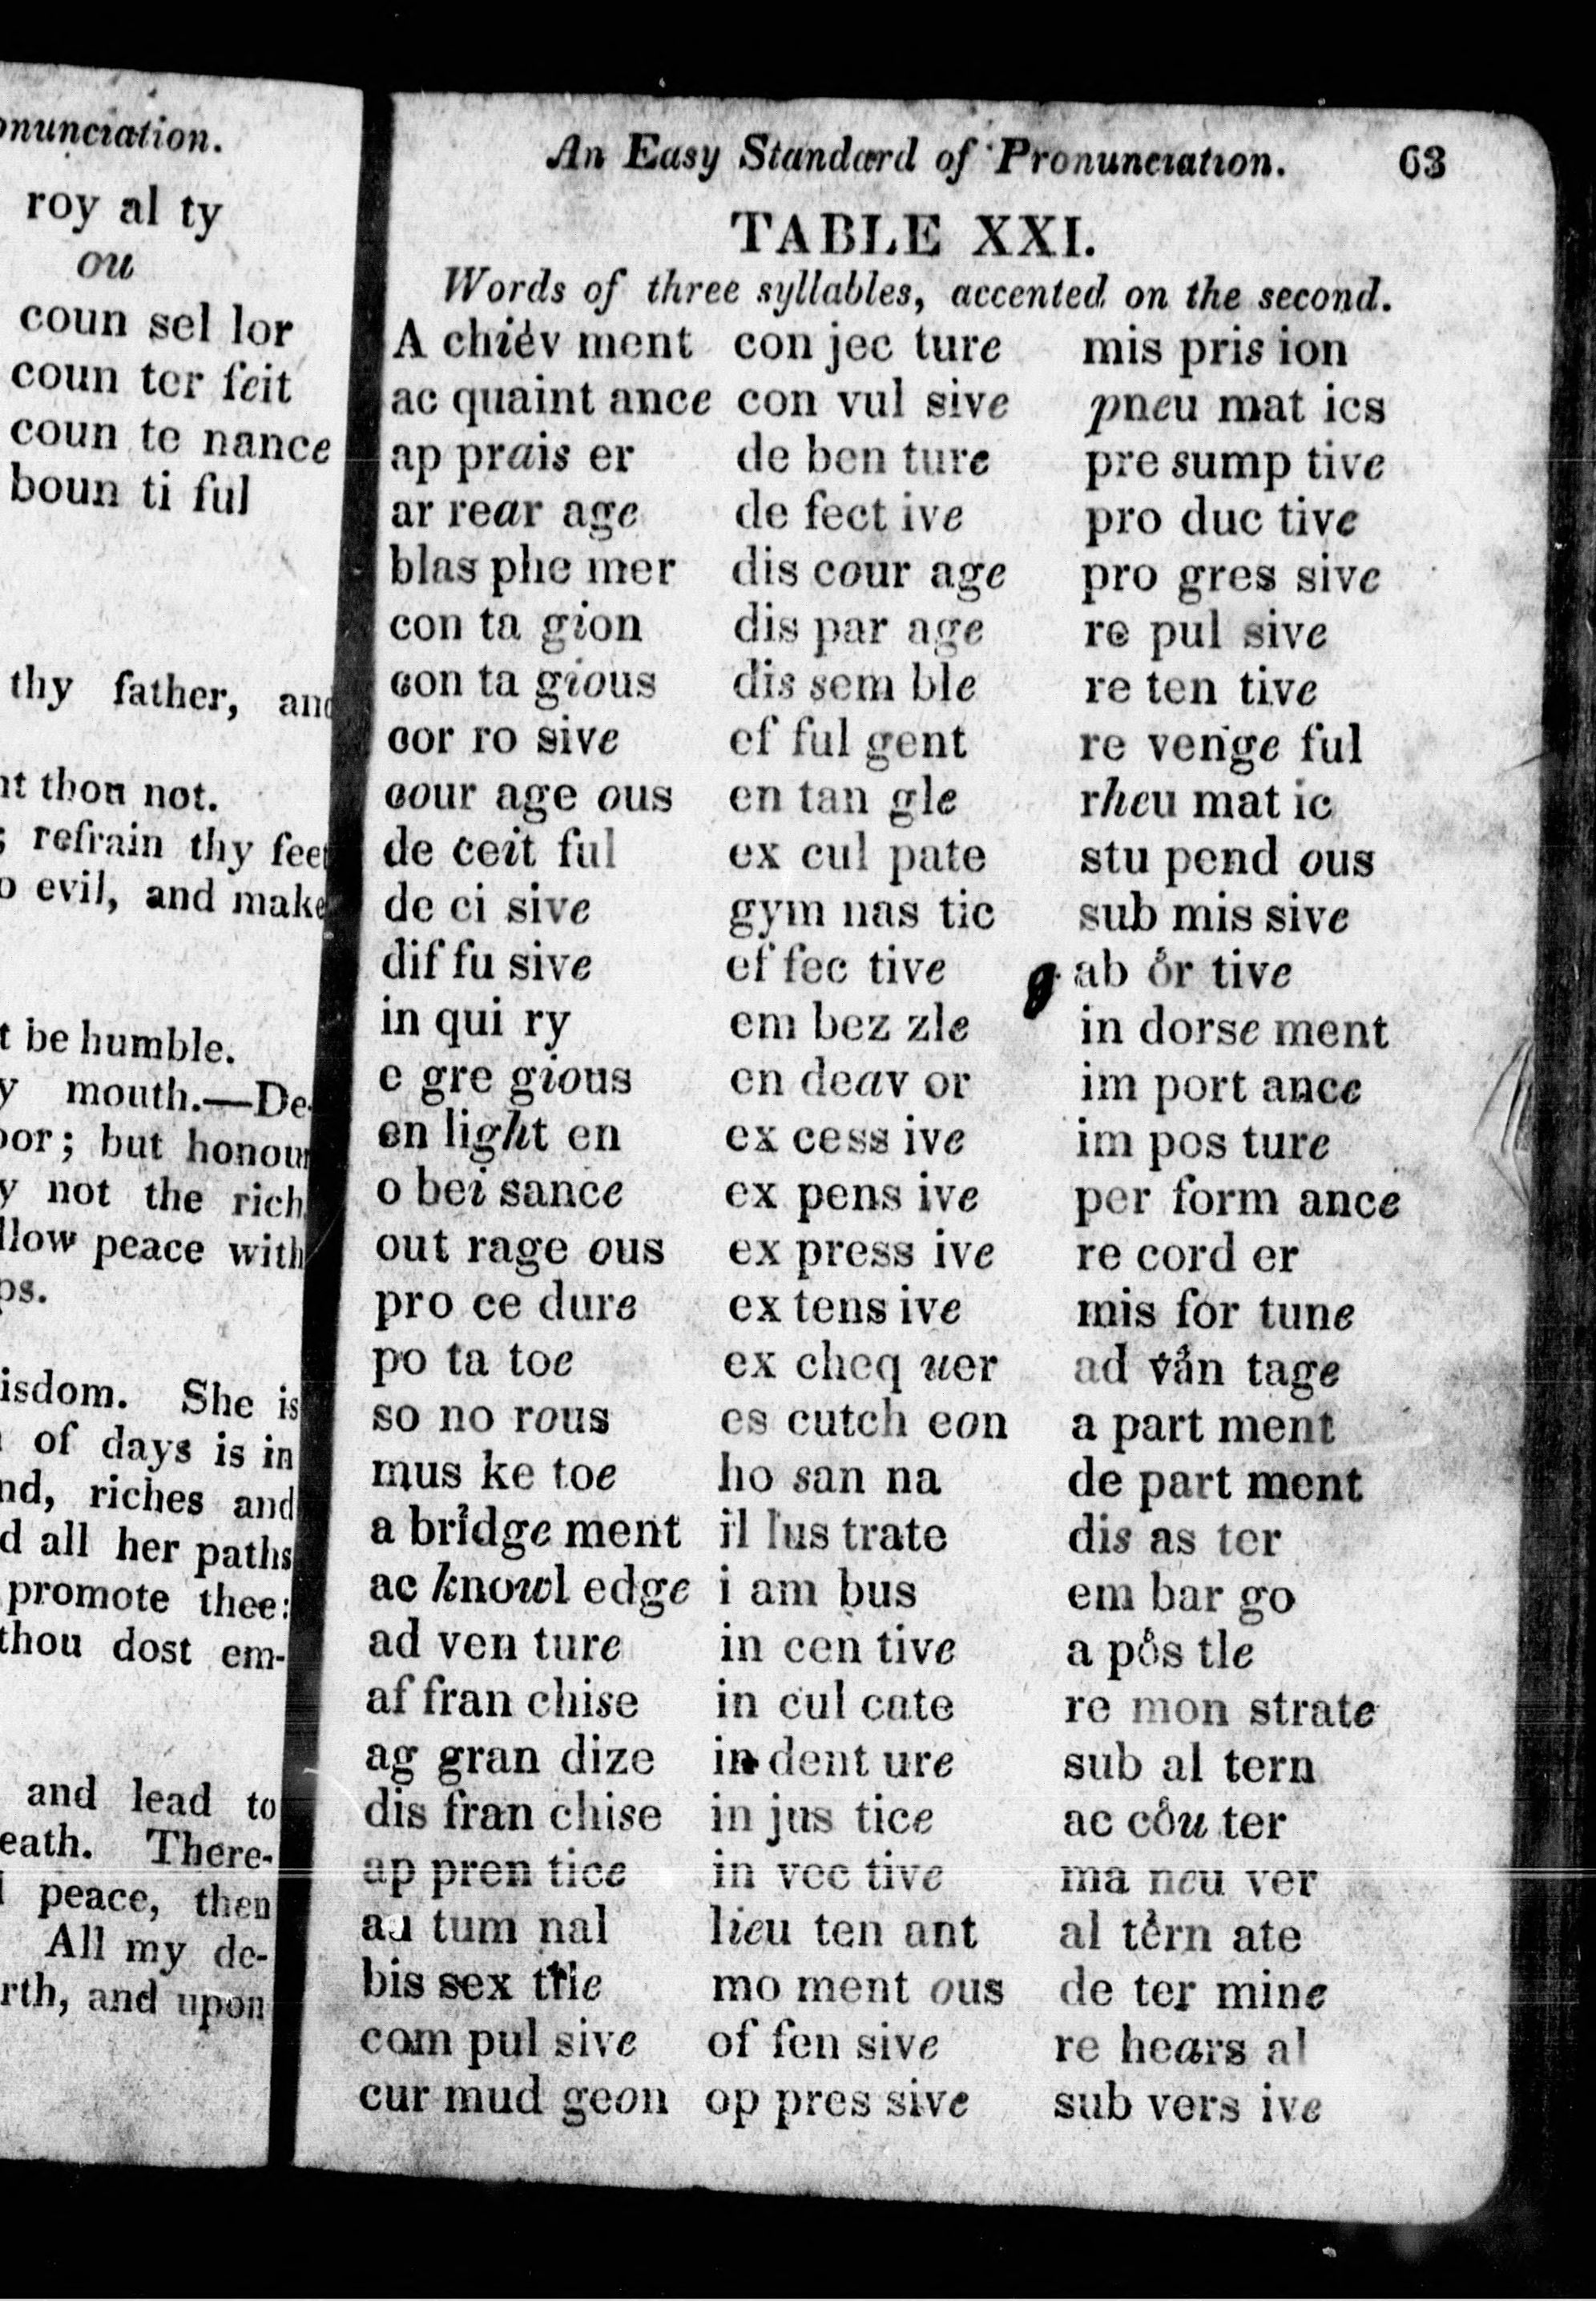 onunciation.
roy al ty
ou
coun sel lor
coun ter feit
coun te nance
boun ti ful
thy father, and
thou not.
; refrain thy feet
o evil, and make
t be humble.
y mouth.—De-
oor; but honour
y not the rich
llow peace with
ps.
isdom. She is
of days is in
nd, riches and
d all her paths
promote thee:
thou dost em-
and lead to
eath. There-
peace, then
All my de-
rth, and upon
An Easy Standard of Pronunciation. 63
TABLE XXI.
Words of three syllables, accented on the second.
A chiev ment
ac quaint ance
ap prais er
ar rear age
blas phe mer
con ta gion
con ta gious
cor ro sive
cour age ous
de ceit ful
de ci sive
dif fu sive
in qui ry
e gre gious
en light en
o bei sance
out rage ous
pro ce dure
po ta toe
so no rous
mus ke toe
a bridge ment
ac knowl edge
ad ven ture
af fran chise
ag gran dize
dis fran chise
ap pren tice
au tum nal
bis sex tile
com pul sive
cur mud geon
con jec ture
con vul sive
de ben ture
de fect ive
dis cour age
dis par age
dis sem ble
ef ful gent
en tan gle
ex cul pate
gym nas tic
ef fec tive
em bez zle
en deav or
ex cess ive
ex pens ive
ex press ive
ex tens ive
ex cheq uer
es cutch eon
ho san na
il lus trate
i am bus
in cen tive
in cul cate
in dent ure
in jus tice
in vec tive
lieu ten ant
mo ment ous
of fen sive
op pres sive
mis pris ion
pneu mat ics
pre sump tive
pro duc tive
pro gres sive
re pul sive
re ten tive
re venge ful
rheu mat ic
stu pend ous
sub mis sive
ab or tive
in dorse ment
im port ance
im pos ture
per form ance
re cord er
mis for tune
ad van tage
a part ment
de part ment
dis as ter
em bar go
a pos tle
re mon strate
sub al tern
ac cou ter
ma neu ver
al tern ate
de ter mine
re hears al
sub vers ive